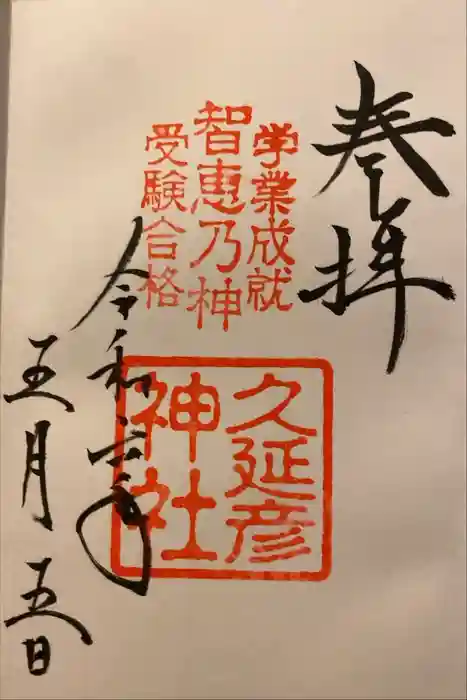 奉拝
学業成就
智恵乃神
受験合格
久延彦
神社
令和六年
五月五日